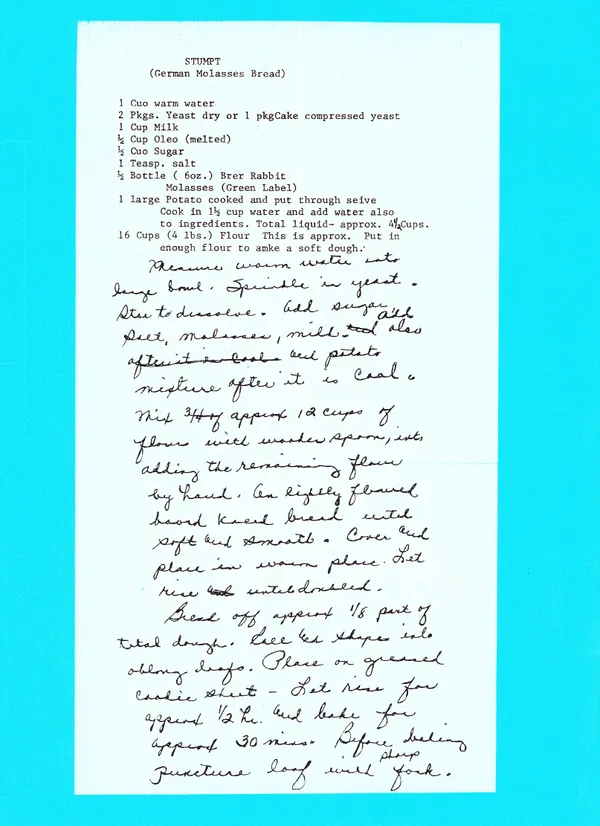 STUMPT
(German Molasses Bread)
1 Cuo warm water
2 Pkgs. Yeast dry or 1 pkgCake compressed yeast
1 Cup Milk
½ Cup Oleo (melted)
½ Cuo Sugar
1 Teasp. salt
½ Bottle ( 6oz.) Brer Rabbit
Molasses (Green Label)
1 large Potato cooked and put through seive
Cook in 1½ cup water and add water also
to ingredients. Total liquid- approx. 4½Cups.
16 Cups (4 lbs.) Flour This is approx. Put in
enough flour to amke a soft dough.
Measure warm water into
large bowl. Sprinkle in yeast.
Stir to dissolve. Add sugar
Salt, molasses, milk. add also
after it is cool and potato
mixture after it is Cool.
Mix 3/4 of approx 12 cups of
flour with wooden spoon,
adding the remaining flour
by hand. On lightly floured
board knead bread until
soft and smooth. Cover and
place in warm place. Let
rise until doubled.
Bread off approx 1/8 part of
total dough. Roll and shape into
oblong loafs. Place on greased
cookie sheet - Let rise for
approx 1/2 hr. and bake for
approx 30 mins. Before baking
puncture loaf with sharp fork.